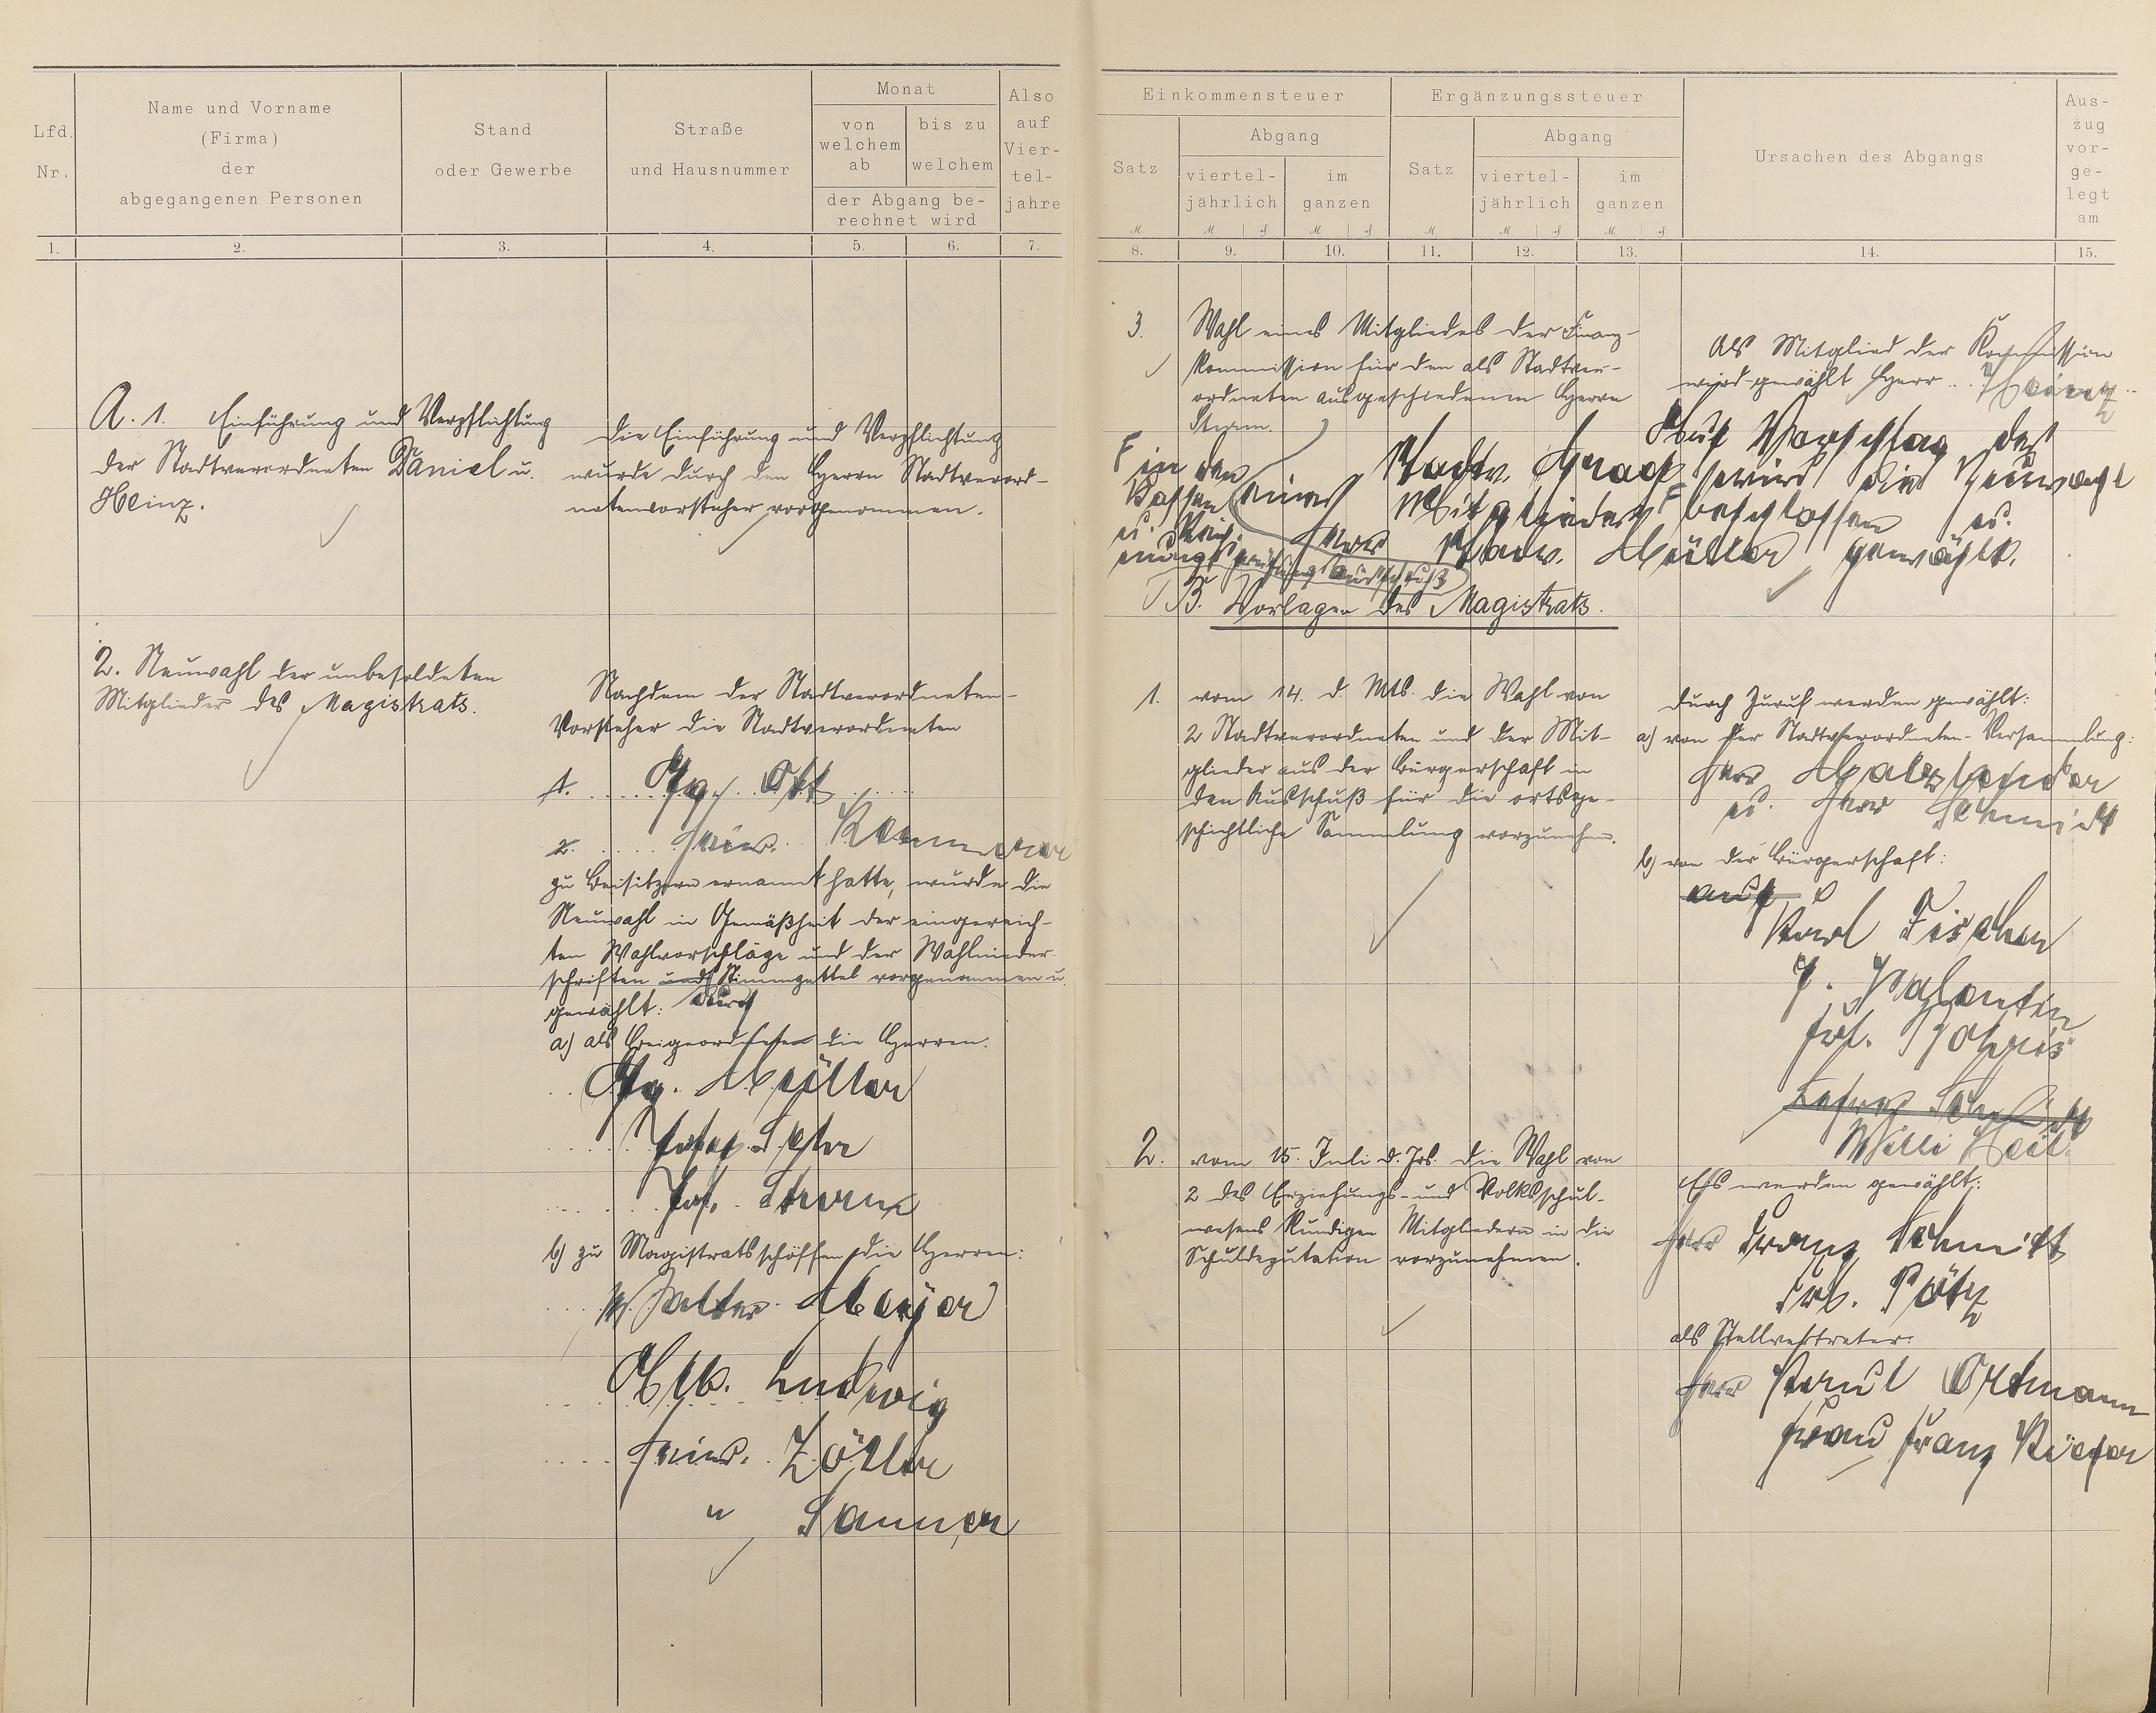 Lfd. Nr.
Name und Vorname
(Firma)
der
abgegangenen Personen
Stand
oder Gewerbe
Straße
und Hausnummer
Monat
von
welchem
ab
bis zu
welchem
der Abgang be-
rechnet wird
Also
auf
Vier-
tel-
jahre
1. 2. 3. 4. 5. 6. 7.
A. 1. Einführung und Verpflichtung
der Stadtverordneten Daniel u.
Heinz.
Die Einführung und Verpflichtung
wurde durch den Herrn Stadtverord-
netenvorsteher vorgenommen.
2. Neuwahl der unbesoldeten
Mitglieder des Magistrats.
Nachdem der Stadtverordneten-
Vorsteher die Stadtverordneten
1. Gg. Ott
2. Heinr.
zu Beisitzern ernannt hatte, wurde die
Neuwahl in Gemäßheit der eingereich-
ten Wahlvorschläge und der Wahlnieder-
schriften und Stimmzettel vorgenommen u.
durch
gewählt:
a) als Beigeordneten die Herren.
Gg. Müller
Josef
Jos. Sturm
b) zu Magistratsschöffen die Herren:
Walter Meyer
Ludwig
Heinr. Zöller
" Sauner
Einkommensteuer
Satz
Abgang
viertel-
jährlich
im
ganzen
Ergänzungssteuer
Satz
Abgang
viertel-
jährlich
im
ganzen
Ursachen des Abgangs
Aus-
zug
vor-
ge-
legt
am
8. 9. 10. 11. 12. 13. 14. 15.
3. Wahl eines Mitgliedes der Finanz-
Kommission für den als Stadtver-
ordneten ausgeschiedenen Herrn
Sturm.
Als Mitglied der Kommission
wird gewählt Herr Heinz
Auf Vorschlag des
Stadtv. wird die Zuwahl
eines Mitgliedes F beschlossen u.
Herr Stadtv. Müller gewählt.
F in den
Kassen
u. Rech-
nungsprüfungsausschuß
B. Vorlagen des Magistrats.
1. vom 14. d. Mts. die Wahl von
2 Stadtverordneten und der Mit-
glieder aus der Bürgerschaft in
den Ausschuß für die ortsge-
schichtliche Sammlung vorzunehmen.
Durch Zuruf werden gewählt:
a) von der Stadtverordneten-Versammlung:
Herr
u. Herr Schmidt
b) von der Bürgerschaft:
Karl Fischer
J. Valentin
Lehrer Schmidt
Willi
2. vom 15. Juli d. Jrs. die Wahl von
2 des Erziehungs- und Volksschul-
wesens kundigen Mitgliedern in die
Schuldeputation vorzunehmen.
Es werden gewählt:
Herr Franz Schmidt
Frl. Pötz
als Stellvertreter:
Herr Paul Ortmann
Frau Franz Kiefer